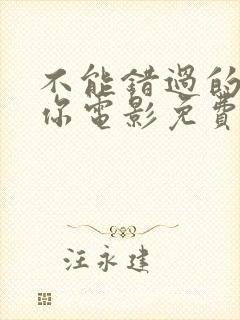 不能错過的
你電影免費
汪永建